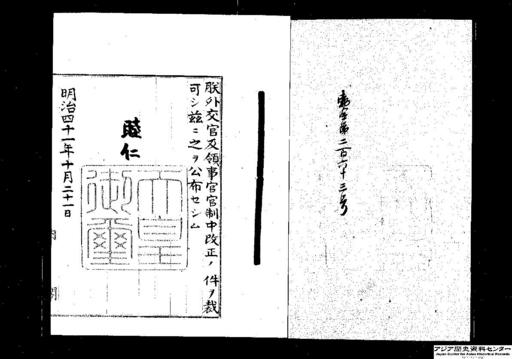 勅令第二百六十三号
朕外交官及領事官官制中改正ノ件ヲ裁
可シ茲ニ之ヲ公布セシム
睦仁
天皇
御璽
明治四十一年十月二十一日
アジア歴史資料センター
Japan Center for Asian Historical Records